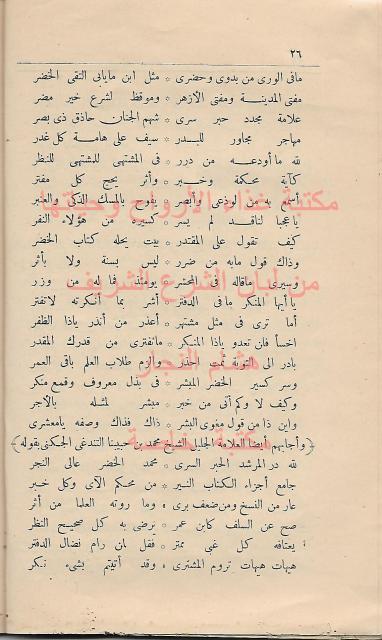 ٢٦
مافى الورى من بدوى وحضرى * مثل ابن مايابى التقى الخضر
مفتى المدينة ومفتى الازهر * وموقظ لشرع خير مضر
علامة مجدد حبر سرى * شهم الجنان حاذق ذى بصر
مهاجر مجاور للبدر * سيف على هامة كل غدر
لله ما أودعه من درر * فى المشتهى للمشتهى للنظر
كآية محكمة وخبر * وأثر يحج كل مفتر
أسمع به من لوذعى وأبصر * يفوح بالمسك الذكى والعنبر
ياعجبا لناقد لم يسر * كسيره من هؤلاء النفر
كيف تقول على المقتدر * بيت يحله كتاب الخضر
وذاك قول مابه من ضرر * ليس بسنة ولا بأثر
وسيرى ماقاله فى المحشر * يومئذ فما له من وزر
ياأيها المنكر مافى الدفتر * أشر بما أنكرته لاتفتر
أما ترى فى مثل مشتهر * أعذر من أنذر ياذا الظفر
اخسأ فان تعدو ياذا المنكر * ماتفترى من قدرك المقدر
بادر الى التوبة تمت احذر * والزم طلاب العلم باقى العمر
وسر كسير الخضر المبشر * فى بذل معروف وقمع منكر
وكيف لا وكم أتى من خبر * مبشر لمثله بالأجر
واين ذا من قول مغوى البشر * ذاك فذاك وصفه يامعشرى
﴿وأجابهم أيضا العلامة الجليل الشيخ محمد بن حبيبنا التندغى الجكنى بقوله﴾
لله در المرشد الحبر السرى * محمد الخضر عالى النجر
جامع أجزاء الكتاب النير * من محكم الآى وكل خبر
عار من النسخ ومن ضعف برى * وما روته العلما من أثر
صح عن السلف كابن عمر * يرضى به كل صحيح النظر
يعتافه كل غبى ممتر * فقل لمن رام نضال الدفتر
هيهات هيهات تروم المشترى * وقد أتيتم بشىء نكر
مكتبة غذاء الأرواح وحياتها
من لبان الشرع الشريف
هشام النجار
مكتبة خمسة